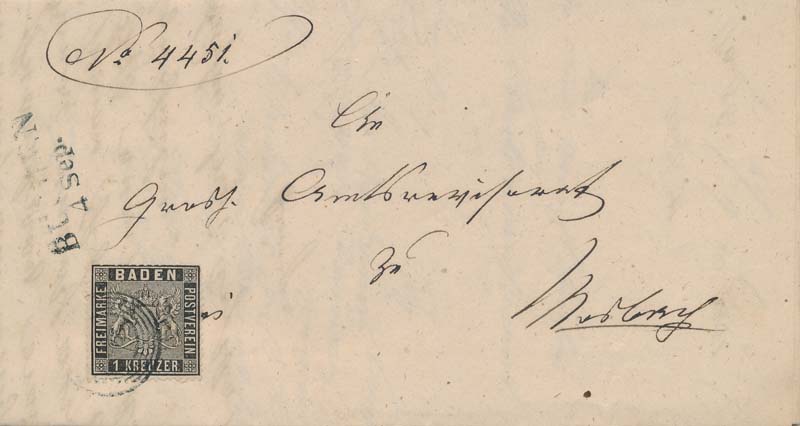 No. 4451.
An
Grosh. Amtsrevisorat
zu
Mosbach
4 Sep.
BADEN
FREIMARKE
POSTVEREIN
1 KREUZER.